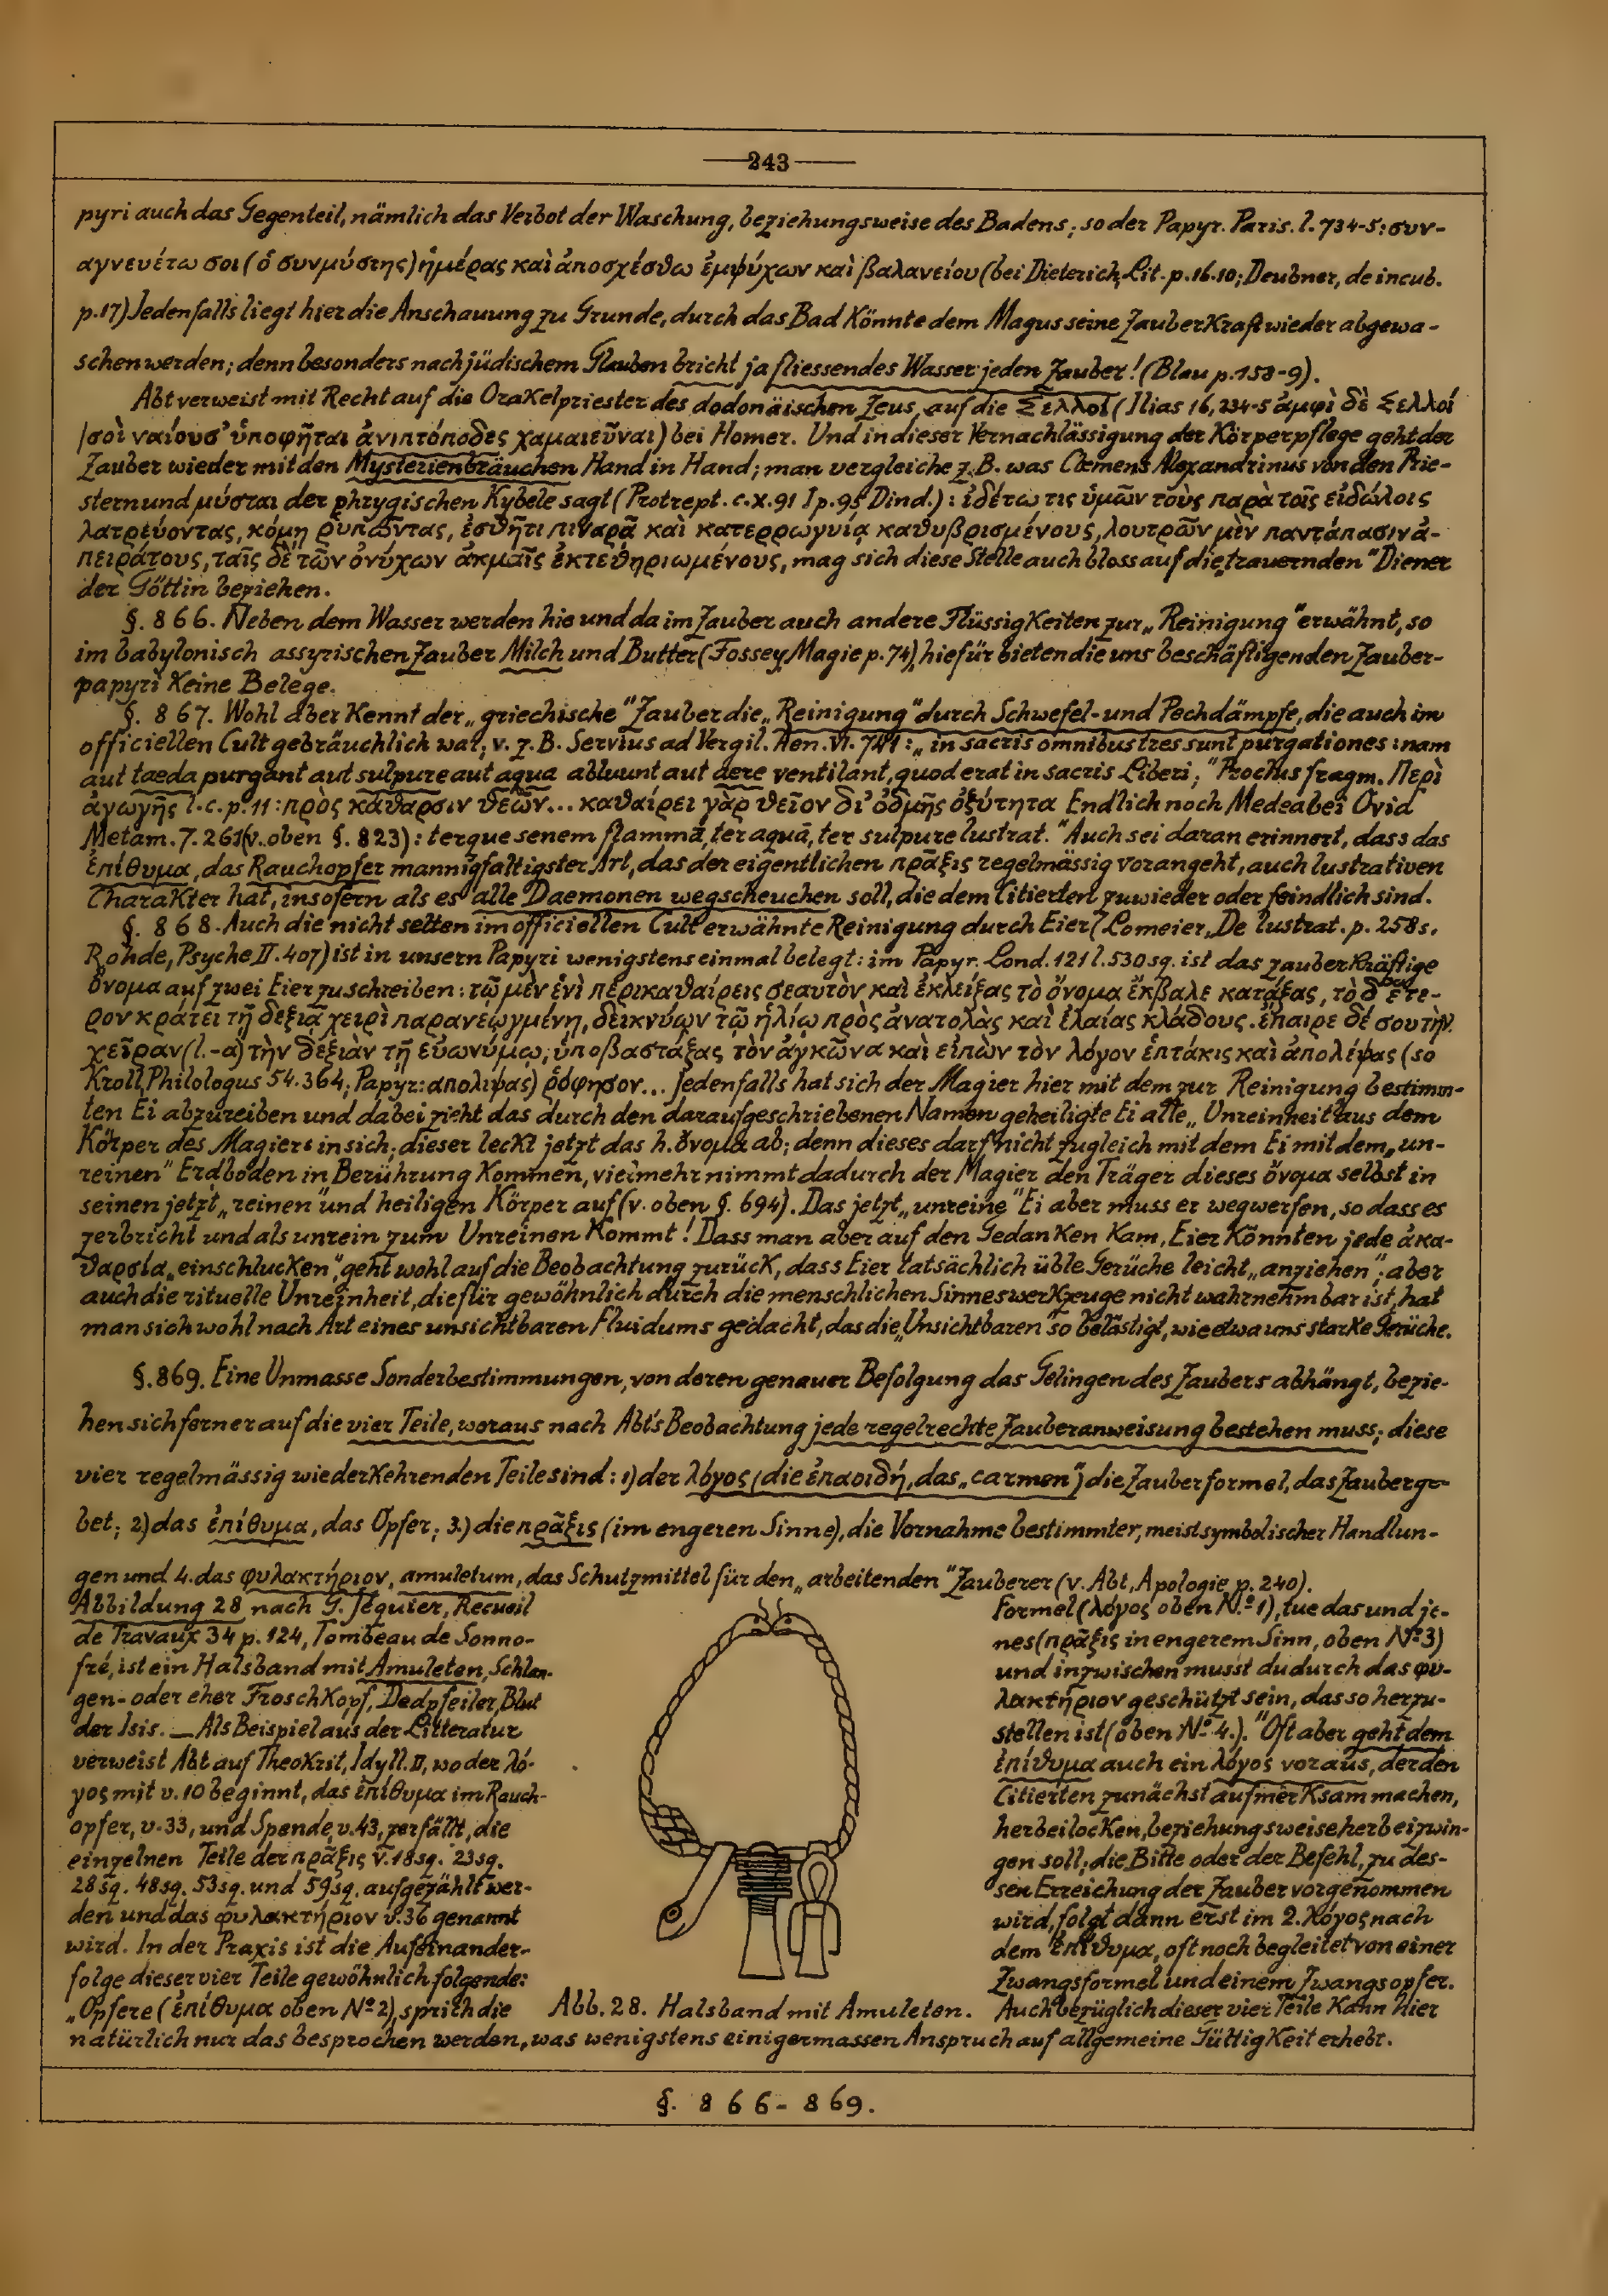 —243—
pyri auch das Gegenteil, nämlich das Verbot der Waschung, beziehungsweise des Badens; so der Papyr. Paris. l. 734-5: συν-
αγνευέτω σοι (ὁ συνμύστης) ἡμέρας καὶ ἀποσχέσθω ἐμψύχων καὶ βαλανείου (bei Dieterich, Lit. p. 16.10; Deubner, de incub.
p. 17) Jedenfalls liegt hier die Anschauung zu Grunde, durch das Bad könnte dem Magus seine Zauberkraft wieder abgewa-
schen werden; denn besonders nach jüdischem Glauben bricht ja fliessendes Wasser jeden Zauber! (Blau p. 158-9).
Abt verweist mit Recht auf die Orakelpriester des dodonäischen Zeus, auf die Σελλοί (Ilias 16, 234-5 ἀμφὶ δὲ Σελλοί
/σοὶ ναίουσ' ὑποφῆται ἀνιπτόποδες χαμαιεῦναι) bei Homer. Und in dieser Vernachlässigung der Körperpflege geht der
Zauber wieder mit den Mysterienbräuchen Hand in Hand; man vergleiche z. B. was Clemens Alexandrinus von den Prie-
stern und μύσται der phrygischen Kybele sagt (Protrept. c. X. 91 I p. 95 Dind.): ἰδέτω τις ὑμῶν τοὺς παρὰ τοῖς εἰδώλοις
λατρεύοντας, κόμῃ ῥυπῶντας, ἐσθῆτι πιναρᾷ καὶ κατερρωγυίᾳ καθυβρισμένους, λουτρῶν μὲν παντάπασιν ἀ-
πειράτους, ταῖς δὲ τῶν ὀνύχων ἀκμαῖς ἐκτεθηριωμένους, mag sich diese Stelle auch bloss auf die „trauernden" Diener
der Göttin beziehen.
§. 866. Neben dem Wasser werden hie und da im Zauber auch andere Flüssigkeiten zur „Reinigung" erwähnt, so
im babylonisch assyrischen Zauber Milch und Butter (Fossey, Magie p. 74), hiefür bieten die uns beschäftigenden Zauber-
papyri keine Belege.
§. 867. Wohl aber kennt der „griechische" Zauber die „Reinigung" durch Schwefel- und Pechdämpfe, die auch im
officiellen Cult gebräuchlich war; v. z. B. Servius ad Vergil. Aen. VI. 741: „in sacris omnibus tres sunt purgationes: nam
aut taeda purgant aut sulpure aut aqua abluunt aut aere ventilant, quod erat in sacris Liberi;" Proclus fragm. Περὶ
ἀγωγῆς l. c. p. 11: πρὸς κάθαρσιν θεῶν... καθαίρει γὰρ θεῖον δι' ὀδμῆς ὀξύτητα Endlich noch Medea bei Ovid
Metam. 7. 261 (v. oben §. 823): terque senem flammā, ter aquā, ter sulpure lustrat." Auch sei daran erinnert, dass das
ἐπίθυμα, das Rauchopfer mannigfaltigster Art, das der eigentlichen πρᾶξις regelmässig vorangeht, auch lustrativen
Charakter hat, insofern als es alle Daemonen wegscheuchen soll, die dem Citierten zuwieder oder feindlich sind.
§. 868. Auch die nicht selten im officiellen Cult erwähnte Reinigung durch Eier (Lomeier, De lustrat. p. 258 s.
Rohde, Psyche II. 407) ist in unsern Papyri wenigstens einmal belegt: im Papyr. Lond. 121 l. 530 sq. ist das zauberkräftige
ὄνομα auf zwei Eier zu schreiben: τῷ μὲν ἑνὶ περικαθαίρεις σεαυτὸν καὶ ἐκλείξας τὸ ὄνομα ἔκβαλε κατάξας, τὸ δ' ἕτε-
ρον κράτει τῇ δεξιᾷ χειρὶ παρανεῳγμένη, δεικνύων τῷ ἡλίῳ πρὸς ἀνατολὰς καὶ ἐλαίας κλάδους. ἔπαιρε δέ σου τὴν
χεῖραν (l. -α) τὴν δεξιὰν τῇ εὐωνύμῳ, ὑποβαστάξας τὸν ἀγκῶνα καὶ εἰπὼν τὸν λόγον ἑπτάκις καὶ ἀπολέψας (so
Kroll, Philologus 54. 364; Papyr: απολιψας) ῥόφησον... Jedenfalls hat sich der Magier hier mit dem zur Reinigung bestimm-
ten Ei abzureiben und dabei zieht das durch den daraufgeschriebenen Namen geheiligte Ei alle „Unreinheit" aus dem
Körper des Magiers in sich; dieser leckt jetzt das h. ὄνομα ab; denn dieses darf nicht zugleich mit dem Ei mit dem „un-
reinen" Erdboden in Berührung kommen, vielmehr nimmt dadurch der Magier den Träger dieses ὄνομα selbst in
seinen jetzt „reinen" und heiligen Körper auf (v. oben §. 694). Das jetzt „unreine" Ei aber muss er wegwerfen, so dass es
zerbricht und als unrein zum Unreinen kommt! Dass man aber auf den Gedanken kam, Eier könnten jede ἀκα-
θαρσία „einschlucken", geht wohl auf die Beobachtung zurück, dass Eier tatsächlich üble Gerüche leicht „anziehen"; aber
auch die rituelle Unreinheit, die für gewöhnlich durch die menschlichen Sinneswerkzeuge nicht wahrnehmbar ist, hat
man sich wohl nach Art eines unsichtbaren Fluidums gedacht, das die „Unsichtbaren" so belästigt, wie etwa uns starke Gerüche.
§. 869. Eine Unmasse Sonderbestimmungen, von deren genauer Befolgung das Gelingen des Zaubers abhängt, bezie-
hen sich ferner auf die vier Teile, woraus nach Abt's Beobachtung jede regelrechte Zauberanweisung bestehen muss; diese
vier regelmässig wiederkehrenden Teile sind: 1) der λόγος (die ἐπαοιδή, das „carmen") die Zauberformel, das Zauberge-
bet; 2) das ἐπίθυμα, das Opfer; 3.) die πρᾶξις (im engeren Sinne), die Vornahme bestimmter, meist symbolischer Handlun-
gen und 4. das φυλακτήριον, amuletum, das Schutzmittel für den „arbeitenden" Zauberer (v. Abt, Apologie p. 240).
Abbildung 28 nach G. Jéquier, Recueil
de Travaux 34 p. 124, Tombeau de Senno-
fré, ist ein Halsband mit Amuleten, Schlan-
gen- oder eher Froschkopf, Dedpfeiler, Blut
der Isis. — Als Beispiel aus der Litteratur
verweist Abt auf Theokrit, Idyll. II, wo der λό-
γος mit v. 10 beginnt, das ἐπίθυμα im Rauch-
opfer, v. 33, und Spende, v. 43, zerfällt, die
einzelnen Teile der πρᾶξις v. 18 sq. 23 sq.
28 sq. 48 sq. 53 sq. und 59 sq. aufgezählt wer-
den und das φυλακτήριον v. 36 genannt
wird. In der Praxis ist die Aufeinander-
folge dieser vier Teile gewöhnlich folgende:
„Opfere (ἐπίθυμα oben Nº 2), sprich die
Abb. 28. Halsband mit Amuleten.
Formel (λόγος oben N.º 1), tue das und je-
nes (πρᾶξις in engerem Sinn, oben Nº 3)
und inzwischen musst du durch das φυ-
λακτήριον geschützt sein, das so herzu-
stellen ist (oben Nº 4.)." Oft aber geht dem
ἐπίθυμα auch ein λόγος voraus, der den
Citierten zunächst aufmerksam machen,
herbeilocken, beziehungsweise herbeizwin-
gen soll; die Bitte oder der Befehl, zu des-
sen Erreichung der Zauber vorgenommen
wird, folgt dann erst im 2. λόγος nach
dem ἐπίθυμα, oft noch begleitet von einer
Zwangsformel und einem Zwangsopfer.
Auch bezüglich dieser vier Teile kann hier
natürlich nur das besprochen werden, was wenigstens einigermassen Anspruch auf allgemeine Gültigkeit erhebt.
§. 866-869.